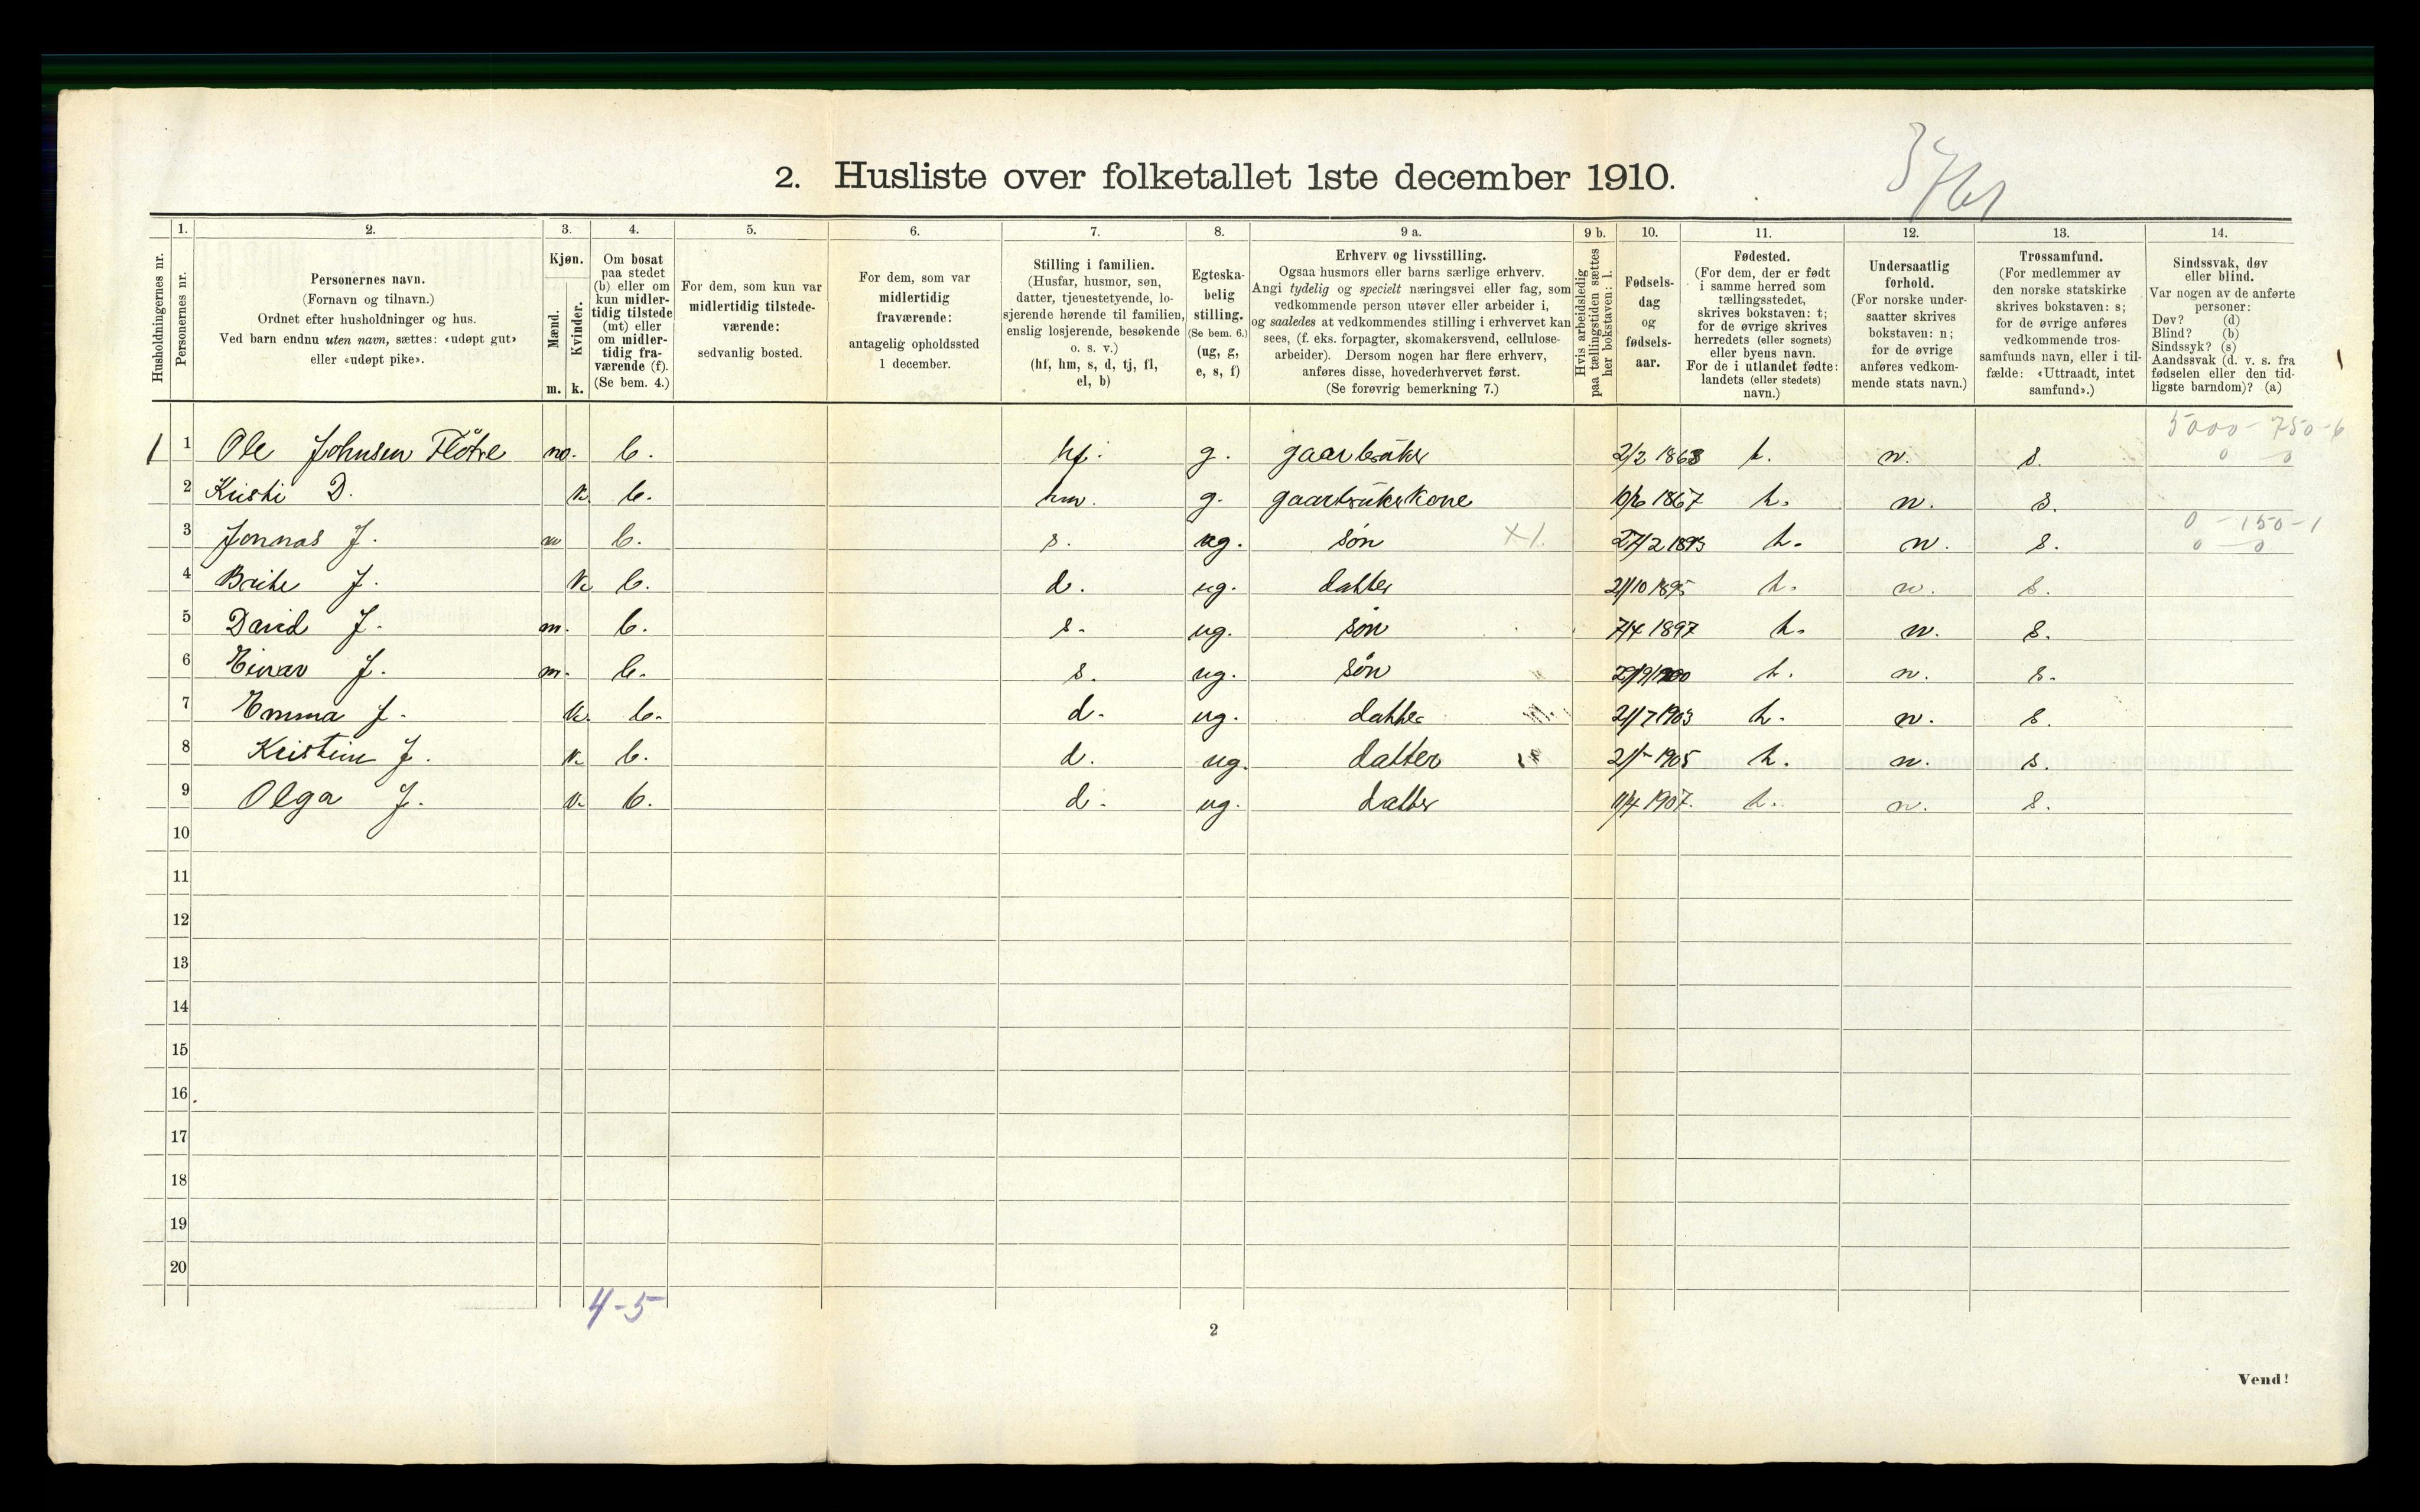 2. Husliste over folketallet 1ste december 1910.
Husholdningernes nr.
1.
Personernes nr.
2.
Personernes navn.
(Fornavn og tilnavn.)
Ordnet efter husholdninger og hus.
Ved barn endnu uten navn, sættes: «udøpt gut»
eller «udøpt pike».
3.
Kjøn.
Mænd.
Kvinder.
m. k.
4.
Om bosat
paa stedet
(b) eller om
kun midler-
tidig tilstede
(mt) eller
om midler-
tidig fra-
værende (f).
(Se bem. 4.)
5.
For dem, som kun var
midlertidig tilstede-
værende:
sedvanlig bosted.
6.
For dem, som var
midlertidig
fraværende:
antagelig opholdssted
1 december.
7.
Stilling i familien.
(Husfar, husmor, søn,
datter, tjenestetyende, lo-
sjerende hørende til familien,
enslig losjerende, besøkende
o. s. v.)
(hf, hm, s, d, tj, fl,
el, b)
8.
Egteska-
belig
stilling.
(Se bem. 6.)
(ug, g,
e, s, f)
9 a.
Erhverv og livsstilling.
Ogsaa husmors eller barns særlige erhverv.
Angi tydelig og specielt næringsvei eller fag, som
vedkommende person utøver eller arbeider i,
og saaledes at vedkommendes stilling i erhvervet kan
sees, (f. eks. forpagter, skomakersvend, cellulose-
arbeider). Dersom nogen har flere erhverv,
anføres disse, hovederhvervet først.
(Se forøvrig bemerkning 7.)
9 b.
Hvis arbeidsledig
paa tællingstiden sættes
her bokstaven: l.
10.
Fødsels-
dag
og
fødsels-
aar.
11.
Fødested.
(For dem, der er født
i samme herred som
tællingsstedet,
skrives bokstaven: t;
for de øvrige skrives
herredets (eller sognets)
eller byens navn.
For de i utlandet fødte:
landets (eller stedets)
navn.)
12.
Undersaatlig
forhold.
(For norske under-
saatter skrives
bokstaven: n;
for de øvrige
anføres vedkom-
mende stats navn.)
13.
Trossamfund.
(For medlemmer av
den norske statskirke
skrives bokstaven: s;
for de øvrige anføres
vedkommende tros-
samfunds navn, eller i til-
fælde: «Uttraadt, intet
samfund».)
14.
Sindssvak, døv
eller blind.
Var nogen av de anførte
personer:
Døv? (d)
Blind? (b)
Sindssyk? (s)
Aandssvak (d. v. s. fra
fødselen eller den tid-
ligste barndom)? (a)
5000 - 750-6
0 0
1 1 Ole Johnsen Flötre m. b. hf. g. gaarbruker 2/2 1863 t. n. s.
2 Kristi D. k b. hm. g. gaarbrukerkone 10/6 1867 t. n. s.
0 - 150-1
0 0
3 Jonnas J. m b. s. ug. søn X1. 27/2 1893 t. n. s.
4 Brite J. k b. d. ug. datter 21/10 1895 t. n. s.
5 David J. m. b. s. ug. søn 7/4 1897 t. n. s.
6 Einar J. m. b. s. ug. søn 1900 t. n. s.
7 Emma J. k. b. d. ug. datter 21/7 1903 t. n. s.
8 Kristine J. k. b. d. ug. datter 1905 t. n. s.
9 Olga J. k. b. d. ug. datter 11/4 1907. t. n. s.
10
11
12
13
14
15
16
17
18
19
20
4-5
2
Vend!